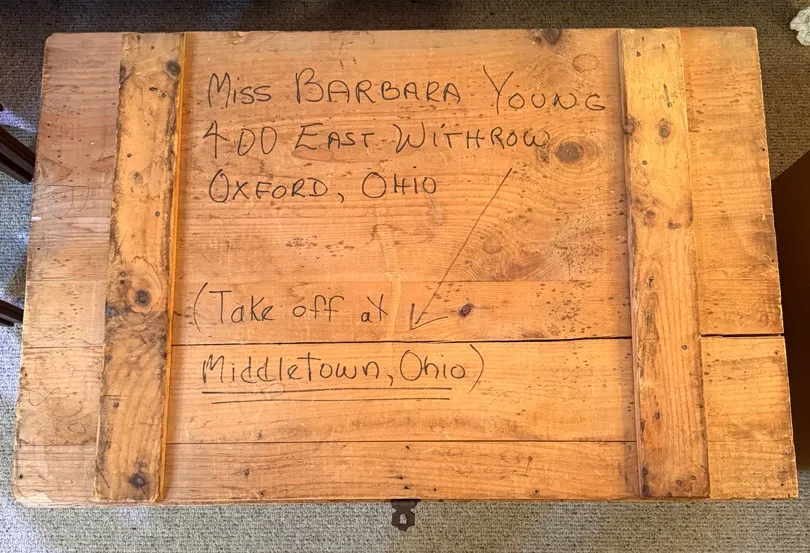 Miss BARBARA YOUNG
400 EAST WITHROW
OXFORD, OHIO
(Take off at
Middletown, Ohio)